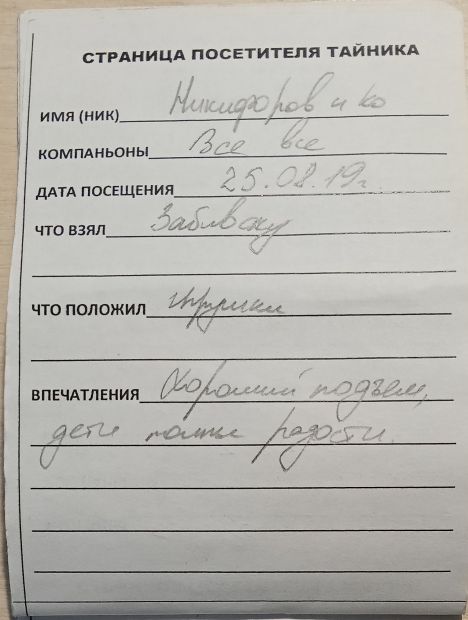 СТРАНИЦА ПОСЕТИТЕЛЯ ТАЙНИКА
ИМЯ (НИК) Никифоров и ко
КОМПАНЬОНЫ Все все
ДАТА ПОСЕЩЕНИЯ 25.08.19г.
ЧТО ВЗЯЛ
ЧТО ПОЛОЖИЛ
ВПЕЧАТЛЕНИЯ Хороший подъем,
дети полны радости.